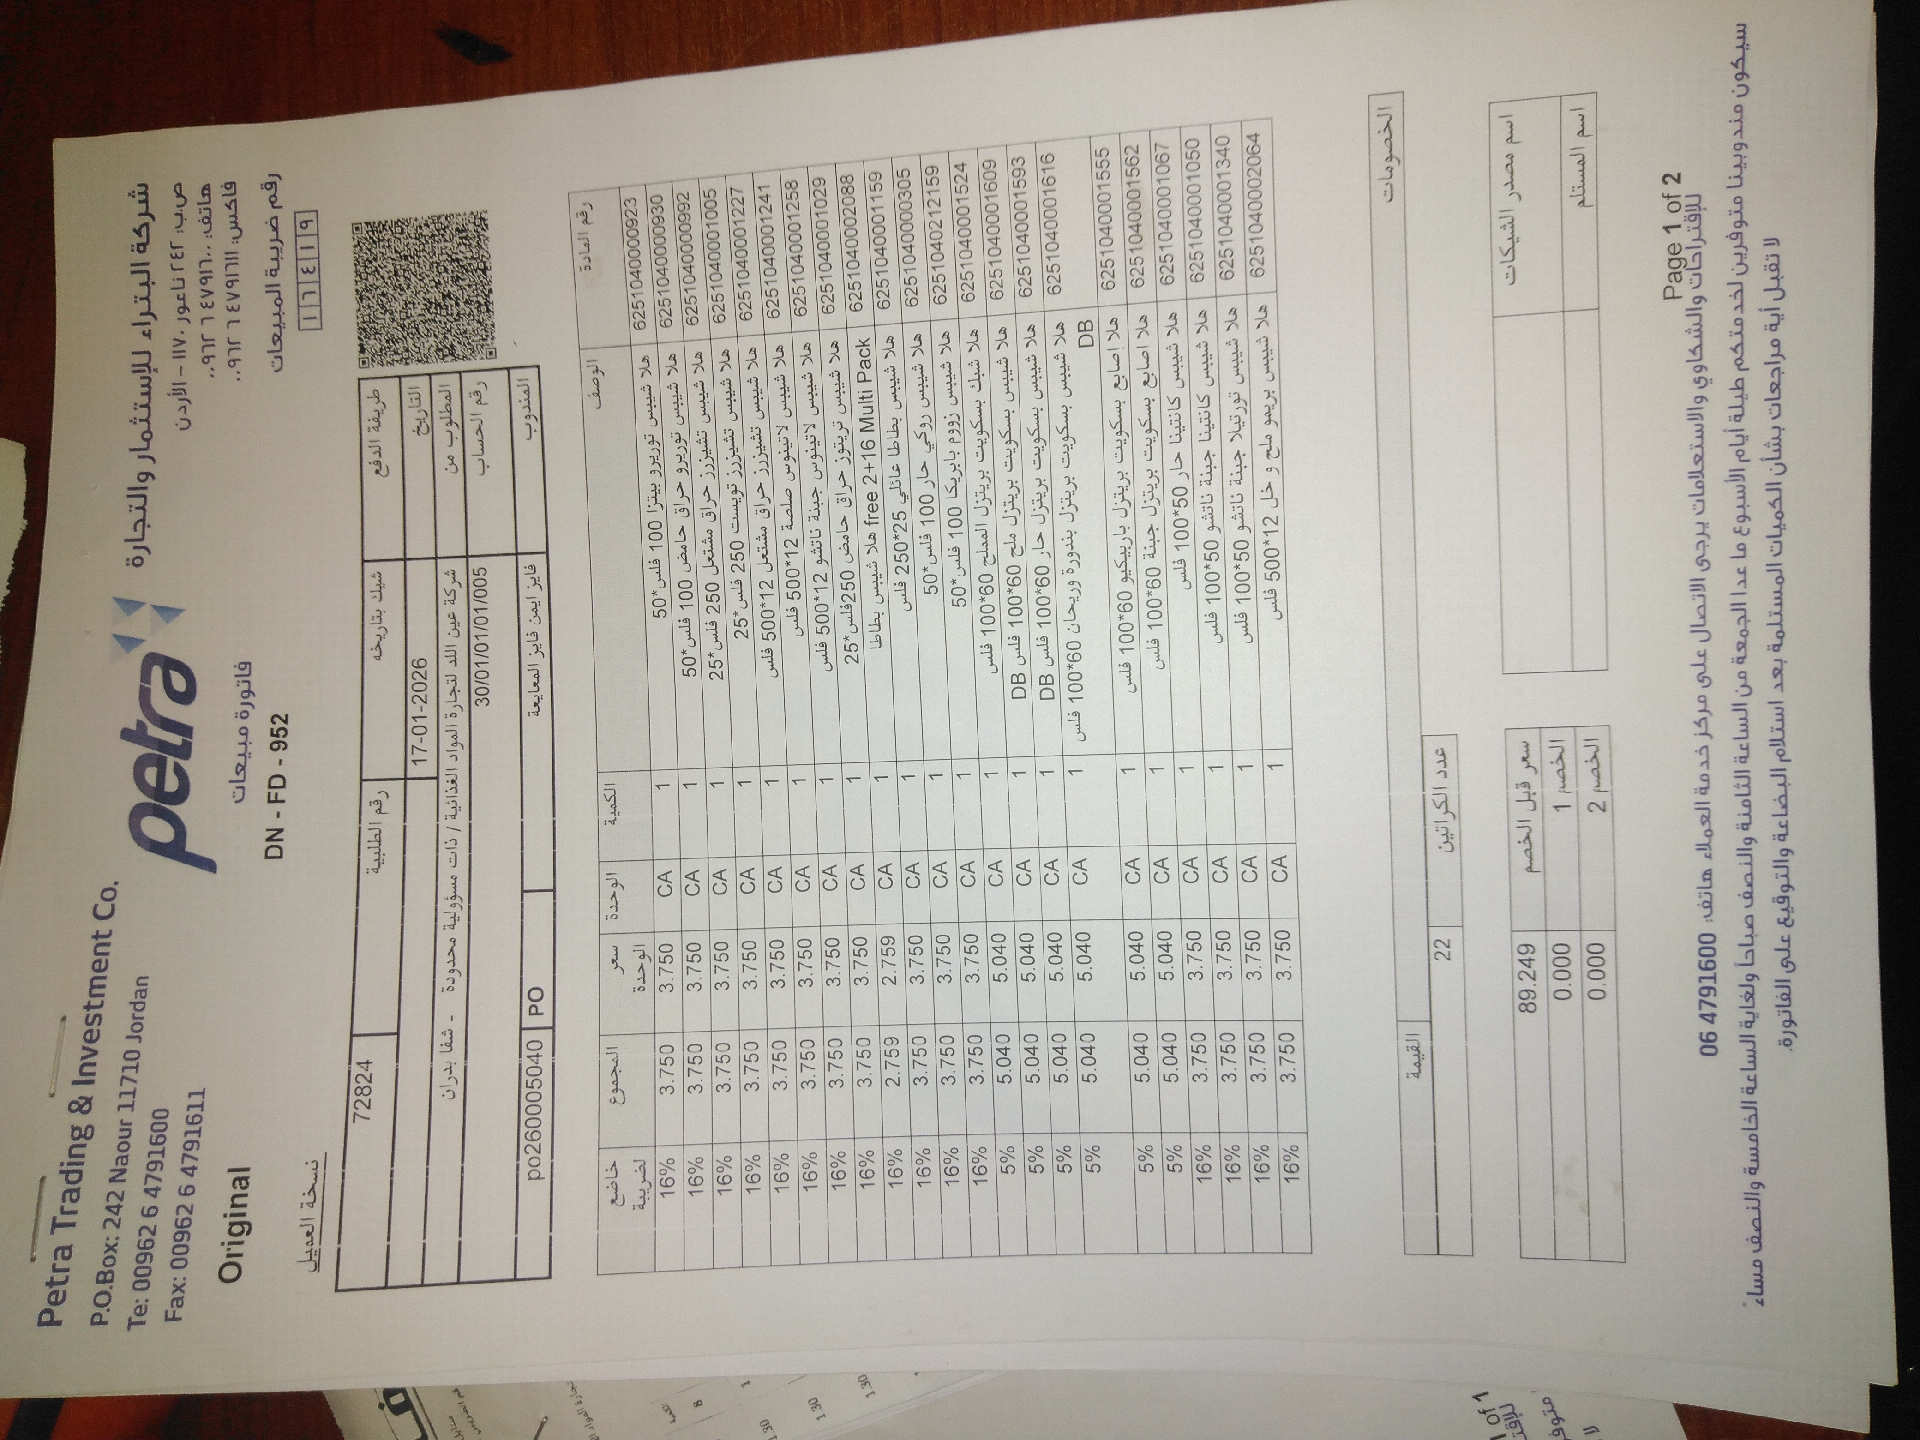 Petra Trading & Investment Co.
P.O.Box: 242 Naour 11710 Jordan
Te: 00962 6 4791600
Fax: 00962 6 4791611
petra
شركة البتراء للإستثمار والتجارة
ص.ب: ٢٤٢ ناعور ١١٧١٠ – الأردن
هاتف: ٤٧٩١٦٠٠ ٦ ٠٠٩٦٢
فاكس: ٤٧٩١٦١١ ٦ ٠٠٩٦٢
رقم ضريبة المبيعات
١١٦٤١١٩
Original
فاتورة مبيعات
DN - FD - 952
نسخة العميل
طريقة الدفع شيك بتاريخه رقم الطلبية 72824
التاريخ 17-01-2026
المطلوب من شركة عين اللد لتجارة المواد الغذائية / ذات مسؤولية محدودة - شفا بدران
رقم الحساب 30/01/01/01/005
المندوب فايز ايمن فايز المعايعة PO po2600005040
رقم المادة الوصف الكمية الوحدة سعر الوحدة المجموع خاضع لضريبة
6251040000923 هلا شيبس توريرو بيتزا 100 فلس*50 1 CA 3.750 3.750 16%
6251040000930 هلا شيبس توريرو حراق حامض 100 فلس*50 1 CA 3.750 3.750 16%
6251040000992 هلا شيبس تشيزرز حراق مشتعل 250 فلس*25 1 CA 3.750 3.750 16%
6251040001005 هلا شيبس تشيزرز تويست 250 فلس*25 1 CA 3.750 3.750 16%
6251040001227 هلا شيبس تشيزرز حراق مشتعل 12*500 فلس 1 CA 3.750 3.750 16%
6251040001241 هلا شيبس لاتينوس صلصة 12*500 فلس 1 CA 3.750 3.750 16%
6251040001258 هلا شيبس لاتينوس جبنة ناتشو 12*500 فلس 1 CA 3.750 3.750 16%
6251040001029 هلا شيبس ترينوز حراق حامض 250فلس*25 1 CA 3.750 3.750 16%
6251040002088 هلا شيبس بطاطا free 2+16 Multi Pack 1 CA 2.759 2.759 16%
6251040001159 هلا شيبس بطاطا عائلي 25*250 فلس 1 CA 3.750 3.750 16%
6251040000305 هلا شيبس روكي حار 100 فلس*50 1 CA 3.750 3.750 16%
6251040212159 هلا شيبس زووم بابريكا 100 فلس*50 1 CA 3.750 3.750 16%
6251040001524 هلا شبك بسكويت بريتزل المملح 60*100 فلس 1 CA 5.040 5.040 5%
6251040001609 هلا شيبس بسكويت بريتزل ملح 60*100 فلس DB 1 CA 5.040 5.040 5%
6251040001593 هلا شيبس بسكويت بريتزل حار 60*100 فلس DB 1 CA 5.040 5.040 5%
6251040001616 هلا شيبس بسكويت بريتزل بندورة وريحان 60*100 فلس DB 1 CA 5.040 5.040 5%
6251040001555 هلا اصابع بسكويت بريتزل باربيكيو 60*100 فلس 1 CA 5.040 5.040 5%
6251040001562 هلا اصابع بسكويت بريتزل جبنة 60*100 فلس 1 CA 5.040 5.040 5%
6251040001067 هلا شيبس كانتينا حار 50*100 فلس 1 CA 3.750 3.750 16%
6251040001050 هلا شيبس كانتينا جبنة ناتشو 50*100 فلس 1 CA 3.750 3.750 16%
6251040001340 هلا شيبس تورتيلا جبنة ناتشو 50*100 فلس 1 CA 3.750 3.750 16%
6251040002064 هلا شيبس بريمو ملح و خل 12*500 فلس 1 CA 3.750 3.750 16%
الخصومات القيمة
عدد الكراتين 22
اسم مصدر الشيكات
اسم المستلم
سعر قبل الخصم 89.249
الخصم 1 0.000
الخصم 2 0.000
Page 1 of 2
للإقتراحات والشكاوي والاستعلامات يرجى الاتصال على مركز خدمة العملاء هاتف: 4791600 06
سيكون مندوبينا متوفرين لخدمتكم طيلة أيام الأسبوع ما عدا الجمعة من الساعة الثامنة والنصف صباحا ولغاية الساعة الخامسة والنصف مساءً
لا تقبل أية مراجعات بشأن الكميات المستلمة بعد استلام البضاعة والتوقيع على الفاتورة.